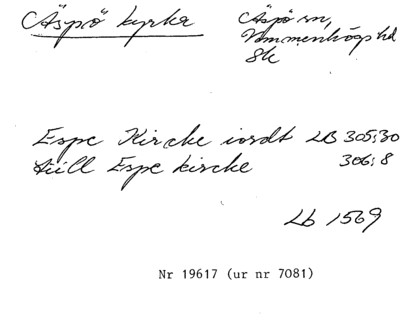 Äspö kyrka
Äspö sn,
Vemmenhögs hd
Sk
Espe Kircke iordt LB 305:30
tiill Espe kircke 306:8
Lb 1569
Nr 19617 (ur nr 7081)